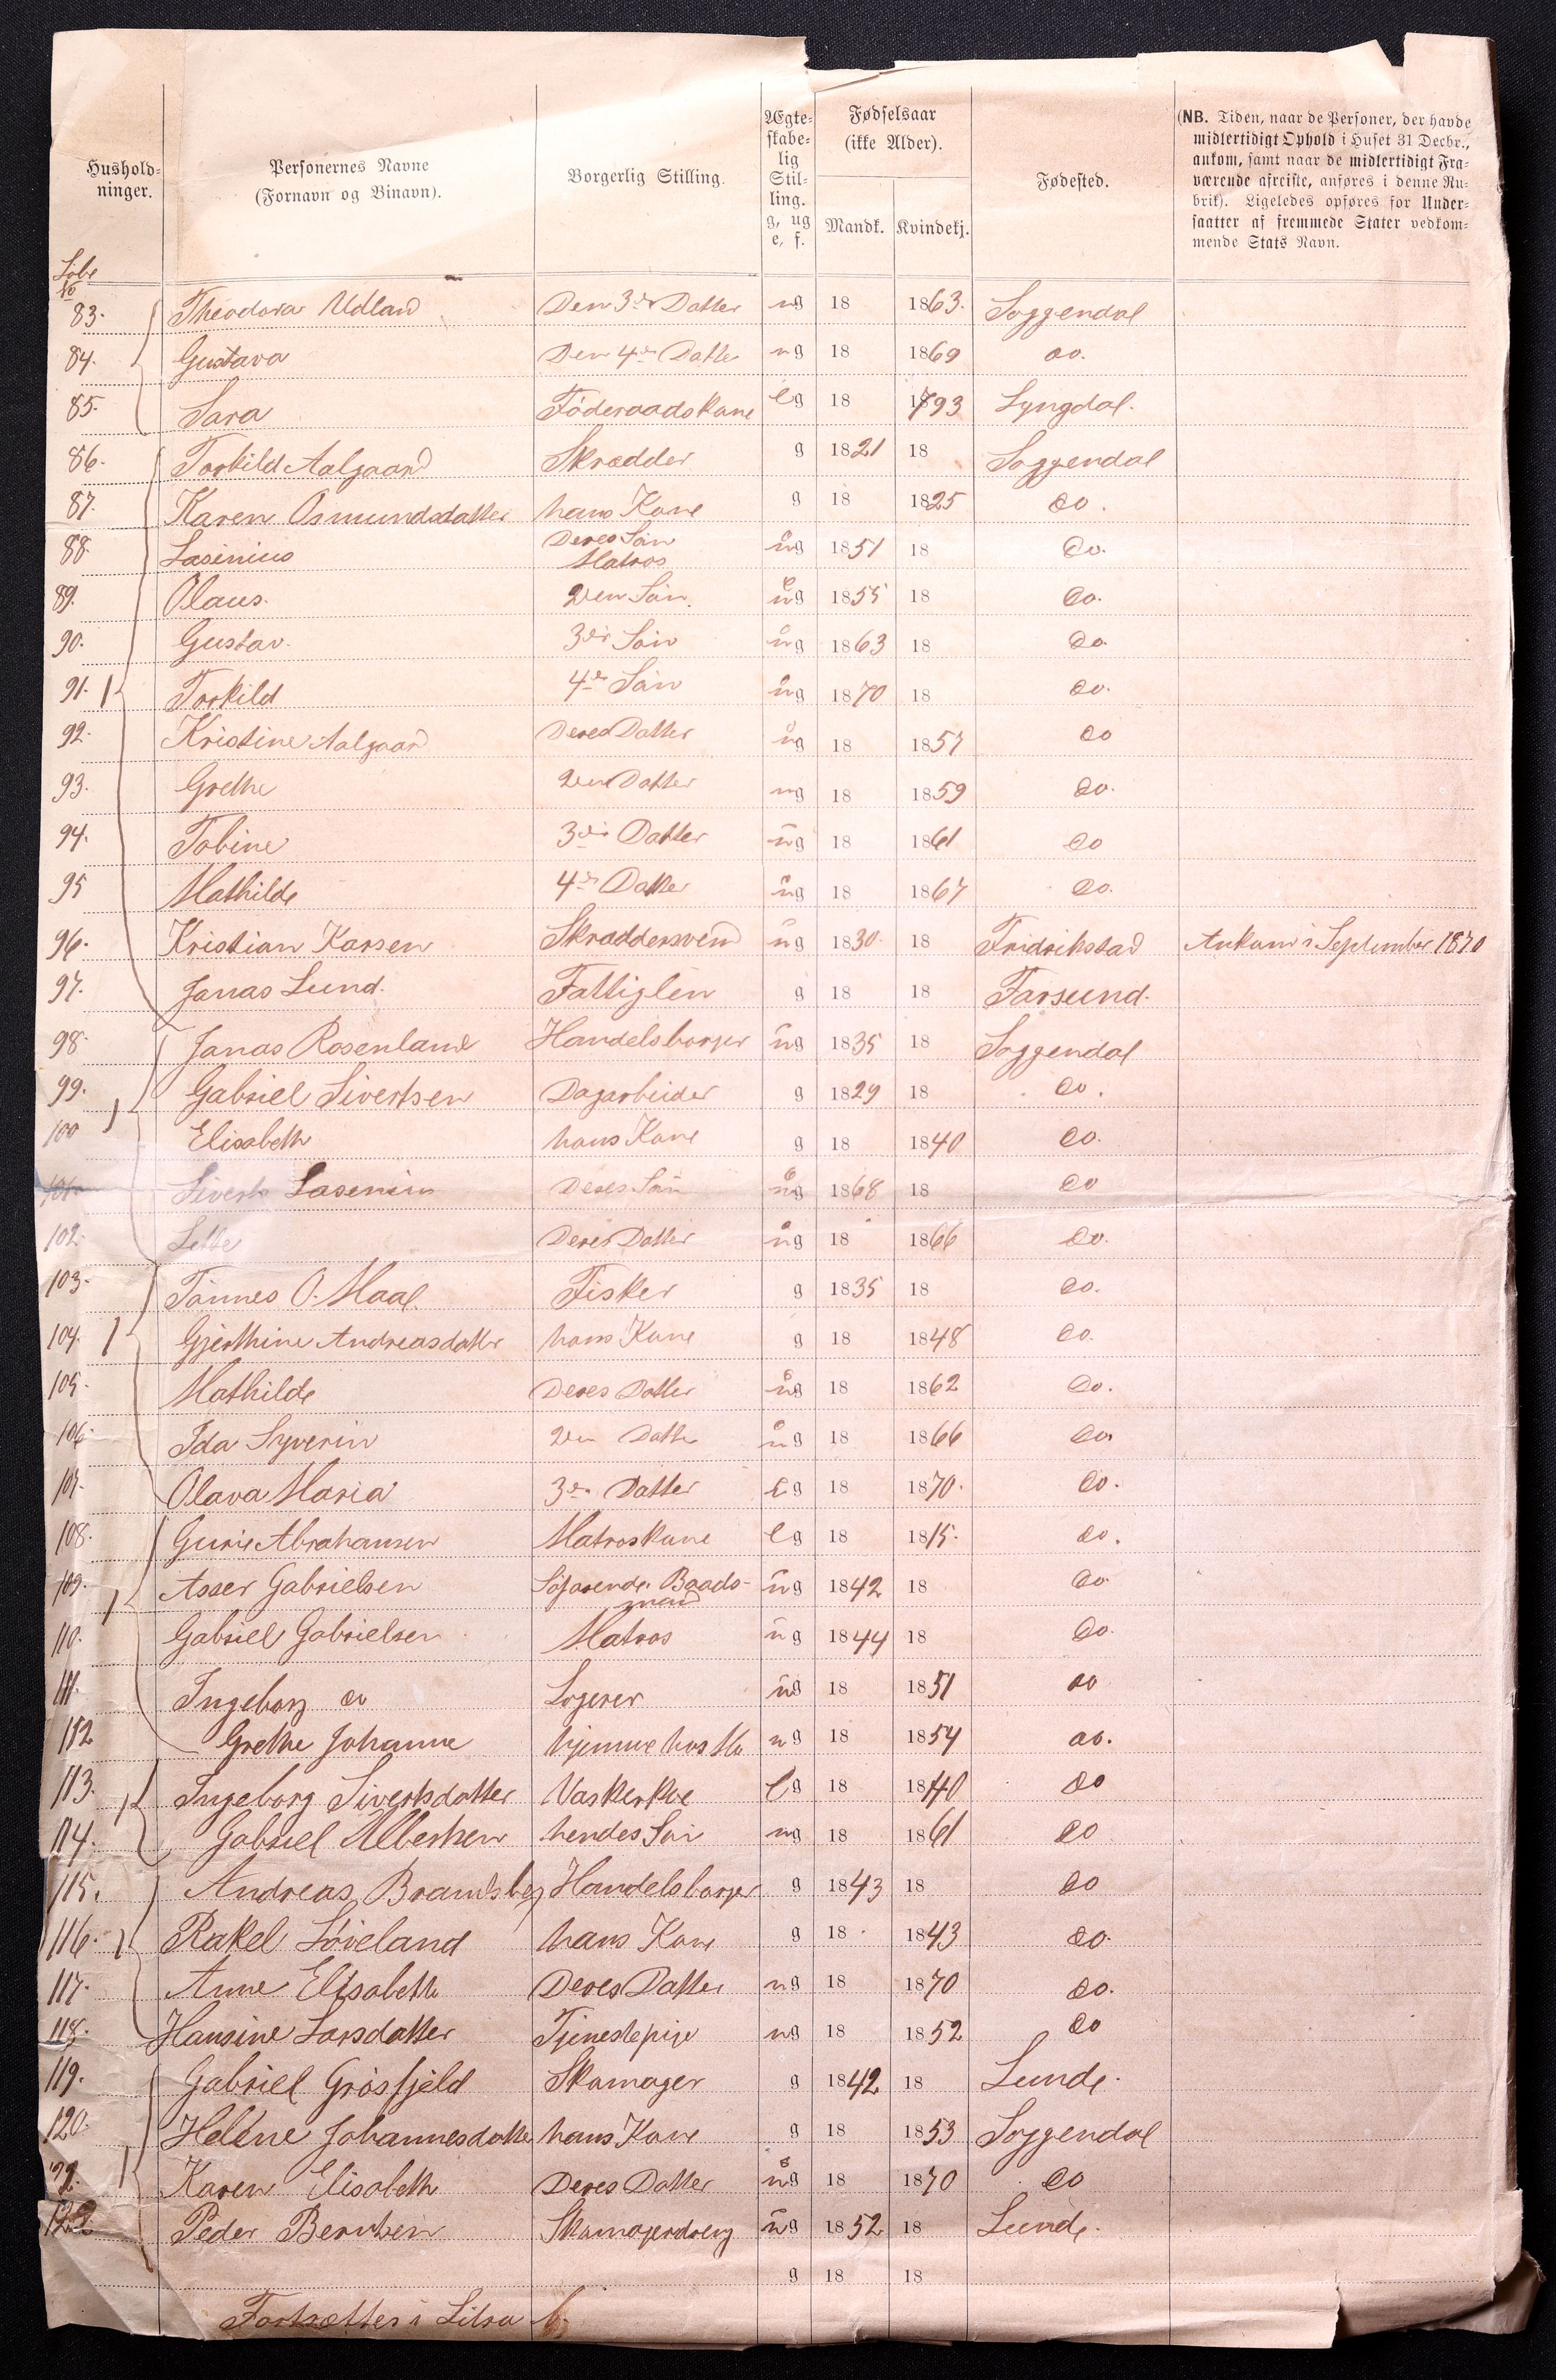 Hushold-
ninger.
Personernes Navne
(Fornavn og Binavn).
Borgerlig Stilling.
Ægte-
skabe-
lig
Stil-
ling.
g, ug
e, f.
Fødselsaar
(ikke Alder).
Mandk. Kvindekj.
Fødested.
(NB. Tiden, naar de Personer, der havde
midlertidigt Ophold i Huset 31 Decbr.,
ankom, samt naar de midlertidigt Fra-
værende afreiste, anføres i denne Ru-
brik). Ligeledes opføres for Under-
saatter af fremmede Stater vedkom-
mende Stats Navn.
Löbe
No
83. Theodora Udland Den 3de Datter ug 18 1863. Soggendal
84. Gustava Den 4de Datter ug 18 1869 do.
85. Sara Föderaadskone eg 18 1793 Lyngdal.
86. Torkild Aalgaard Skrædder g 1821 18 Soggendal
87. Karen Osmundsdatter hans Kone g 18 1825 do.
88. Lasenius Deres Sön Matros ug 1851 18 do.
89. Olaus. 2den Sön. ug 1855 18 do.
90. Gustav. 3die Sön ug 1863 18 do.
91. Torkild 4de Sön ug 1870 18 do.
92. Kristine Aalgaard Deres Datter ug 18 1857 do
93. Grethe 2den Datter ug 18 1859 do.
94. Tobine 3die Datter ug 18 1861 do
95 Mathilde 4de Datter ug 18 1867 do.
96. Kristian Karsen Skræddersvend ug 1830. 18 Fridrikstad Ankom i September 1870
97. Jonas Lund. Fattiglem g 18 18 Farsund.
98. Jonas Rosenland Handelsborger ug 1835 18 Soggendal
99. Gabriel Sivertsen Dagarbeider g 1829 18 do.
100 Elisabeth hans Kone g 18 1840 do.
101. Sivert Lasenius Deres Sön ug 1868 18 do
102. Deres Datter ug 18 1866 do.
103. Tönnes O. Maal. Fisker g 1835 18 do.
104. Gjerthine Andreasdatter hans Kone g 18 1848 do.
105. Mathilde Deres Datter ug 18 1862 do.
106. Ida Syverin 2den Datter ug 18 1866 do
107. Olava Maria 3de Datter eg 18 1870. do.
108. Gurie Abrahamsen Matroskone eg 18 1815. do.
109. Asser Gabrielsen Söfarende Baads-
mand ug 1842 18 do
110. Gabriel Gabrielsen Matros ug 1844 18 do.
111. Ingeborg do Logerer ug 18 1851 do
112 Grethe Johanne hjemme hos Mo ug 18 1854 do.
113. Ingeborg Sivertsdatter Vaskerkone eg 18 1840 do
114. Gabriel Albertsen hendes Sön ug 18 1861 do
115. Andreas Handelsborger g 1843 18 do
116. Rakel Löveland hans Kone g 18 1843 do.
117. Anne Elisabeth Deres Datter ug 18 1870 do.
118. Hansine Larsdatter Tjenestepige ug 18 1852 do
119. Gabriel Grösfjeld Skomager g 1842 18 Lunde.
120. Helene Johannesdatter hans Kone g 18 1853 Soggendal
Karen Elisabeth Deres Datter ug 18 1870 do
122 Peder Berntsen Skomagerdreng ug 1852 18 Lunde.
g 18 18
Fortsættes i Litra b.